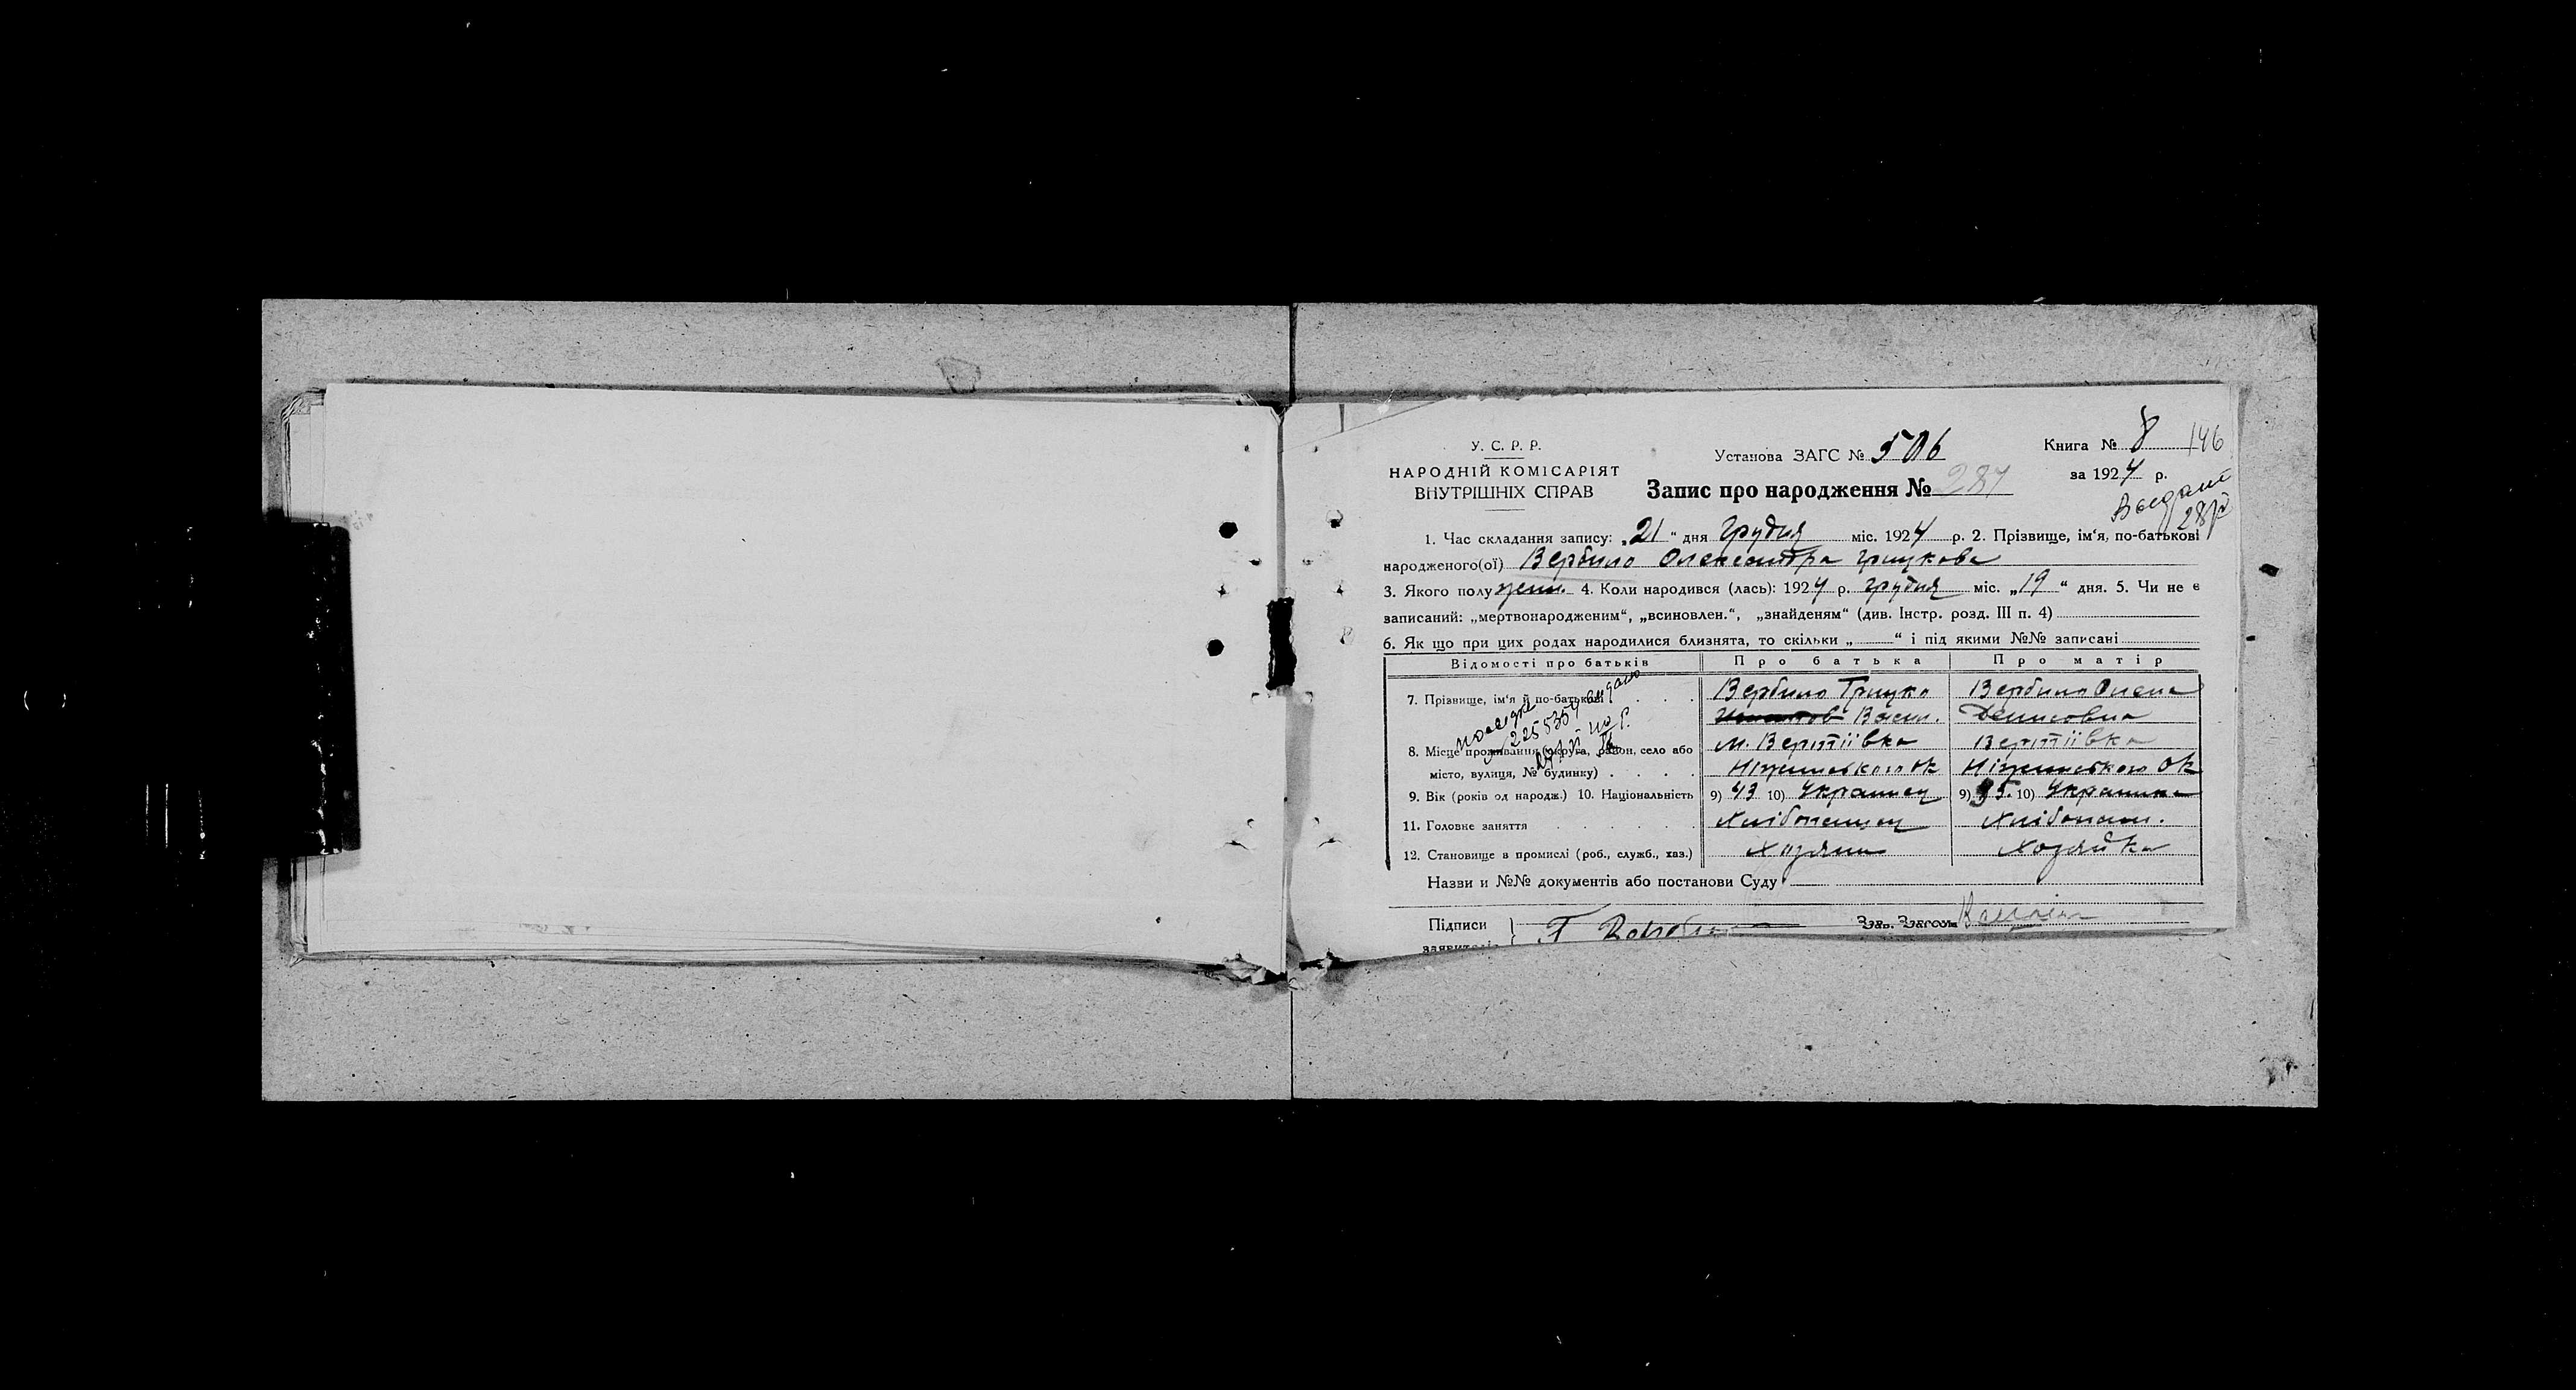 У. С. Р. Р.
НАРОДНІЙ КОМІСАРІЯТ
ВНУТРІШНІХ СПРАВ
Установа ЗАГС № 506
Запис про народження № 287
Книга № 8 146
за 1924 р.
1. Час складання запису: „21“ дня Грудня міс. 1924 р. 2. Прізвище, ім'я, по-батькові
народженого(ої) Вербило Олександра Грицкова
3. Якого полу жен. 4. Коли народився (лась): 1924 р. грудня міс. „19“ дня. 5. Чи не є
записаний: „мертвонародженим“, „всиновлен.“, „знайденям“ (див. Інстр. розд. III п. 4)
6. Як що при цих родах народилися близнята, то скільки „ “ і під якими №№ записані
Відомості про батьків Про батька Про матір
7. Прізвище, ім'я й по-батькові Вербило Грицко Вербило Олена
Васил. Денисовна
8. Місце проживання (округа, район, село або м. Вертіївка Вертіївка
місто, вулиця, № будинку) Ніженського ок Ніженською ок
9. Вік (років од народж.) 10. Національність 9) 43 10) Украинец 9) 35. 10) Украинка
11. Головне заняття Хлібопашец Хлібопаш.
12. Становище в промислі (роб., служб., хаз.) Хозяин Хозяйка
Назви и №№ документів або постанови Суду
Підписи Зав. Загсом
заявителів